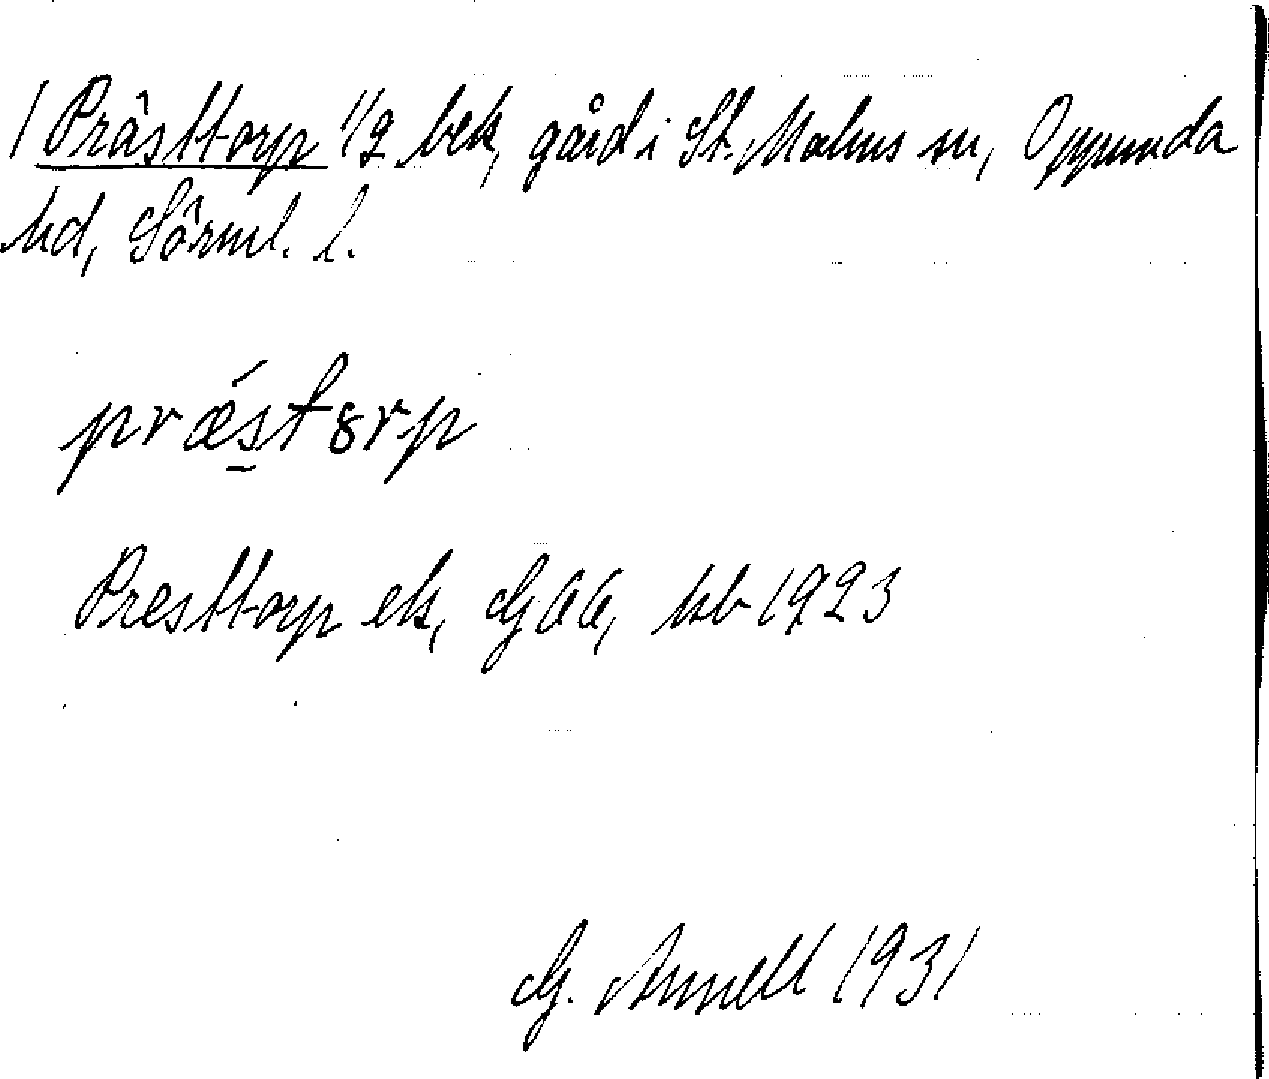 / Prästtorp 1/2 bek, gård i St. Malms sn, Oppunda
hd, Sörml. l.
præ´s̠tȣrp
Presttorp ek, GAA, kb 1923
G. Annell 1931